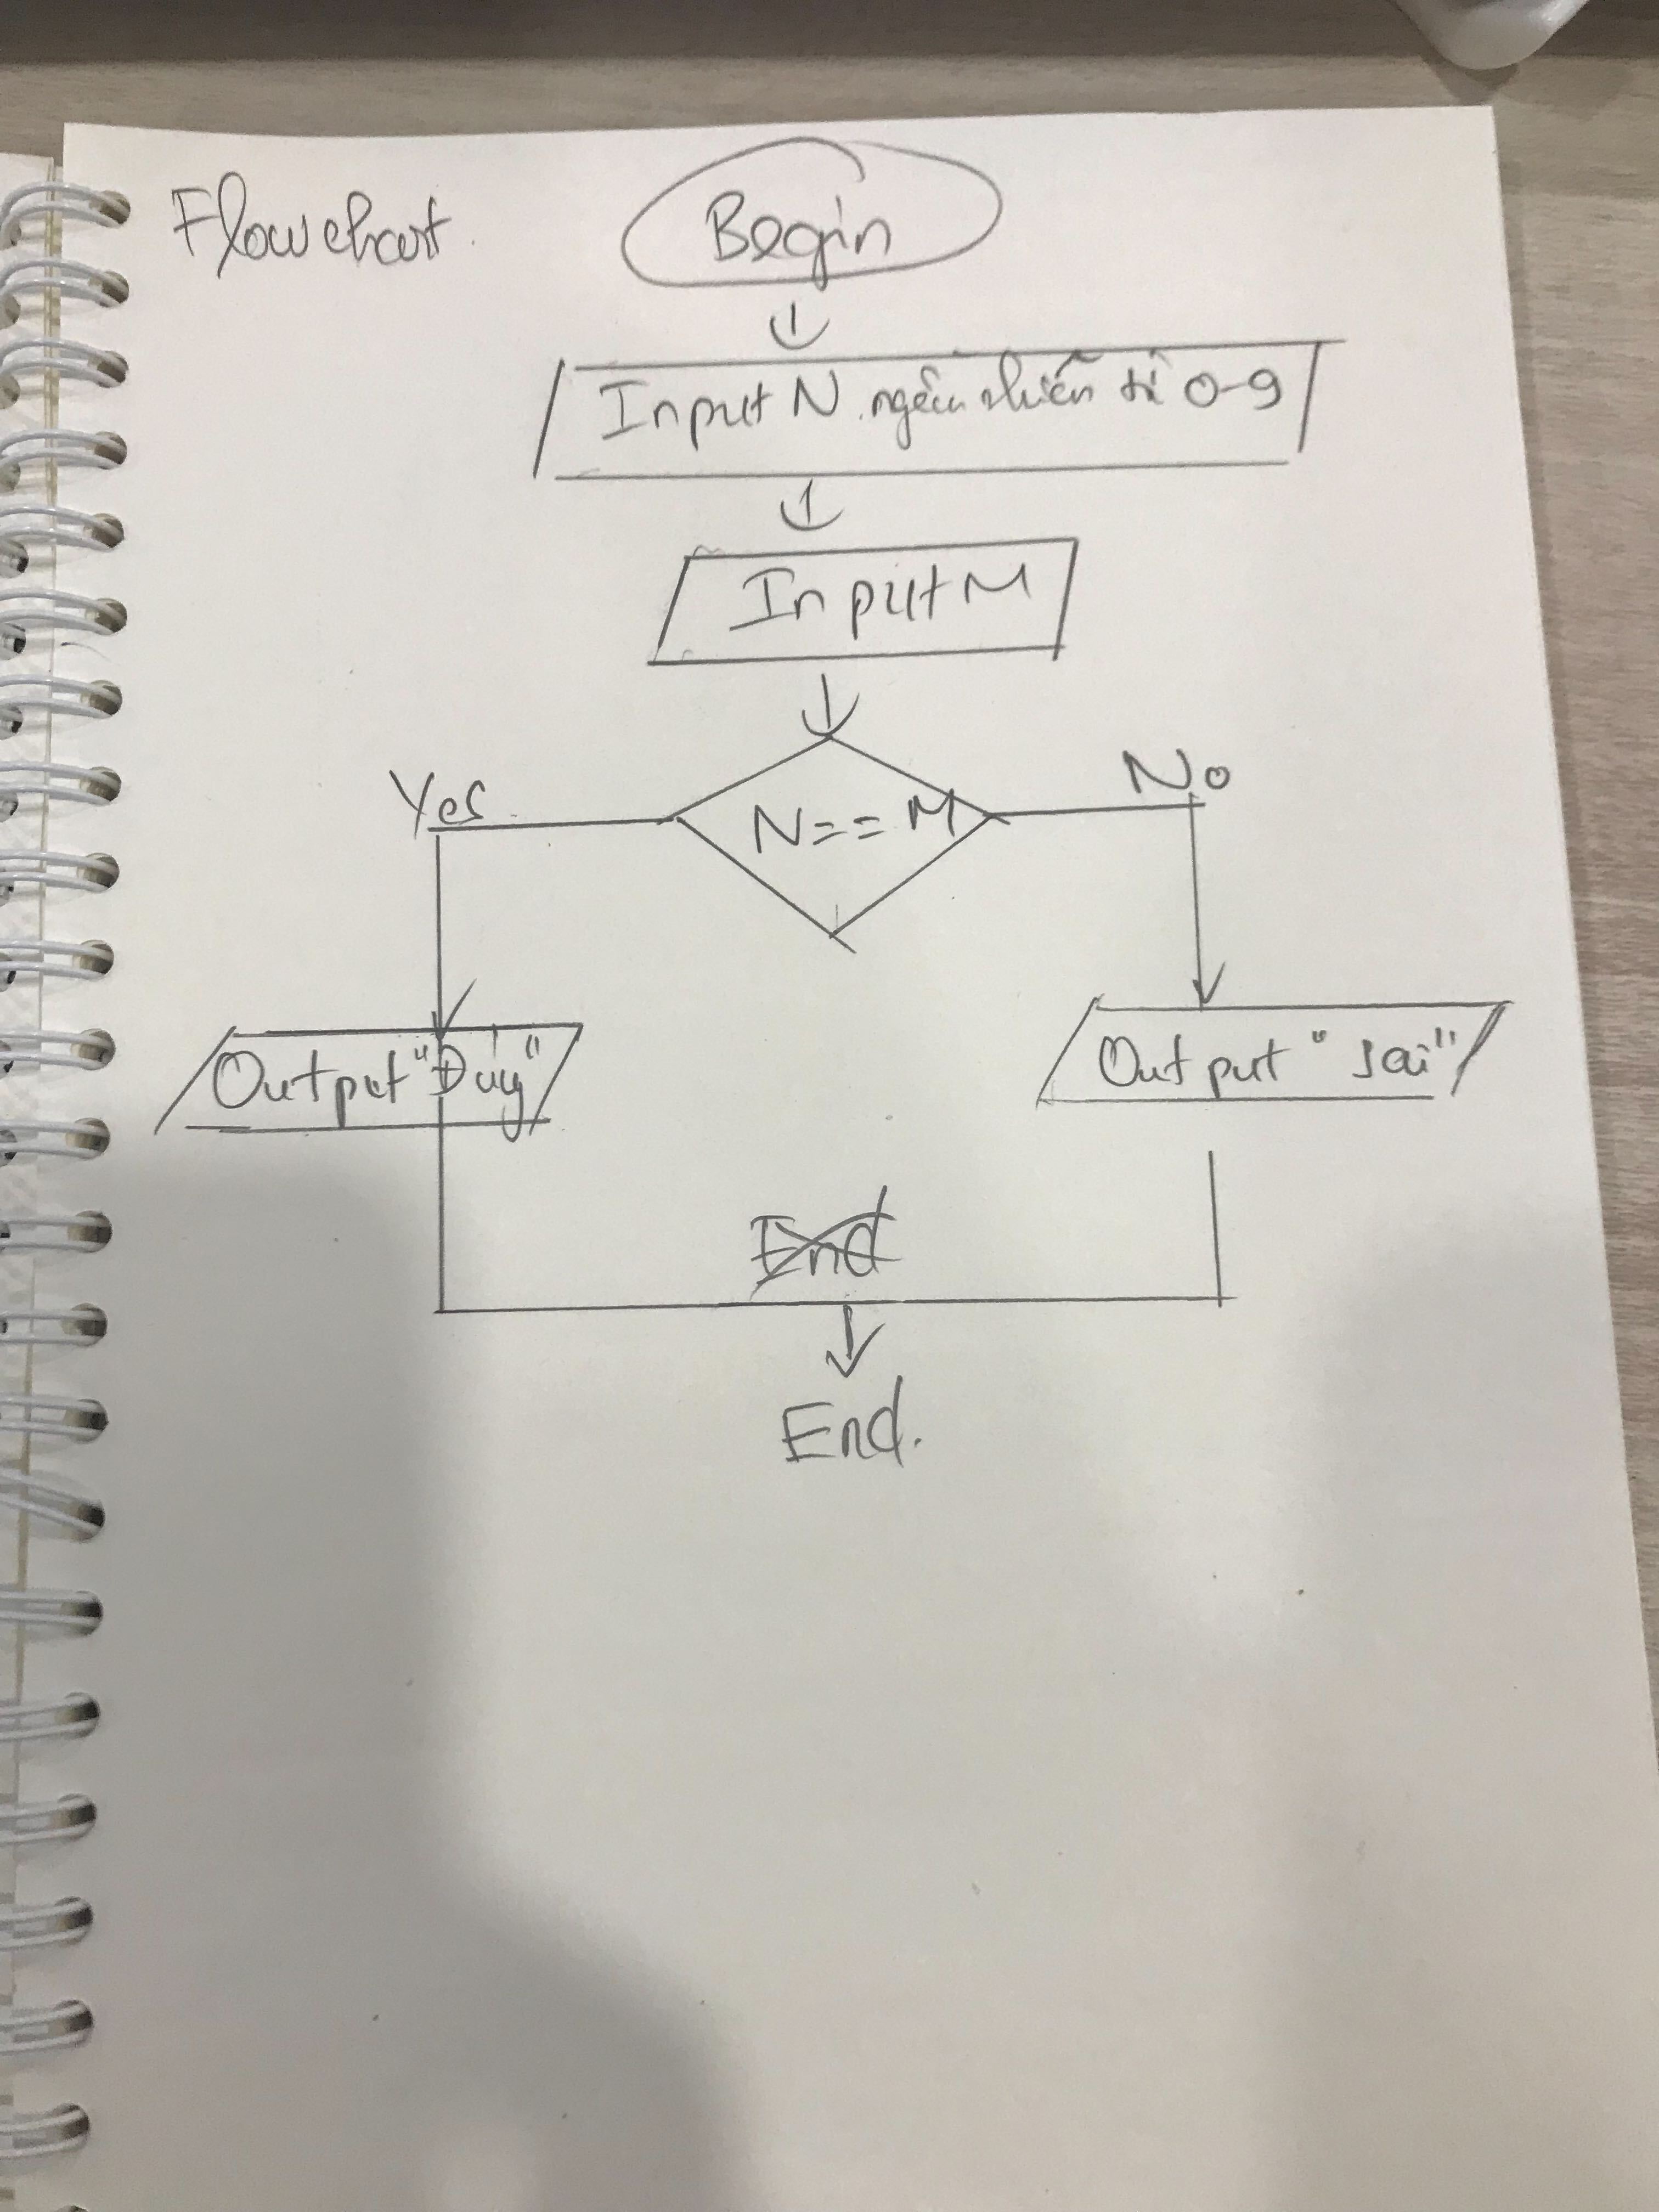 Flowchart.
Begin
Input N ngẫu nhiên từ 0-9
Input M
Yes
N==M
No
Output "Đúng"
Output "sai"
End
End.